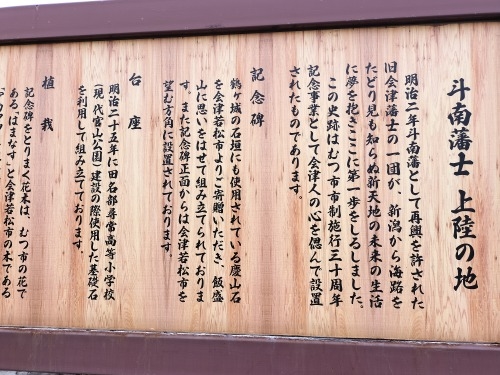 斗南藩士 上陸の地
明治二年斗南藩として再興を許された
旧会津藩士の一団が、新潟から海路を
たどり見も知らぬ新天地の未来の生活
に夢を抱きここに第一歩をしるしました。
この史跡はむつ市市制施行三十周年
記念事業として会津人の心を偲んで設置
されたものであります。
記念碑
鶴ヶ城の石垣にも使用されている慶山石
を会津若松市よりご寄贈いただき、飯盛
山に思いをはせて組み立てられておりま
す。また記念碑正面からは会津若松市を
望む方角に設置されております。
台座
明治二十五年に田名部尋常高等小学校
(現代官山公園)建設の際使用した基礎石
を利用して組み立てております。
植栽
記念碑をとりまく花木は、むつ市の花で
ある「はまなす」と会津若松市の木である